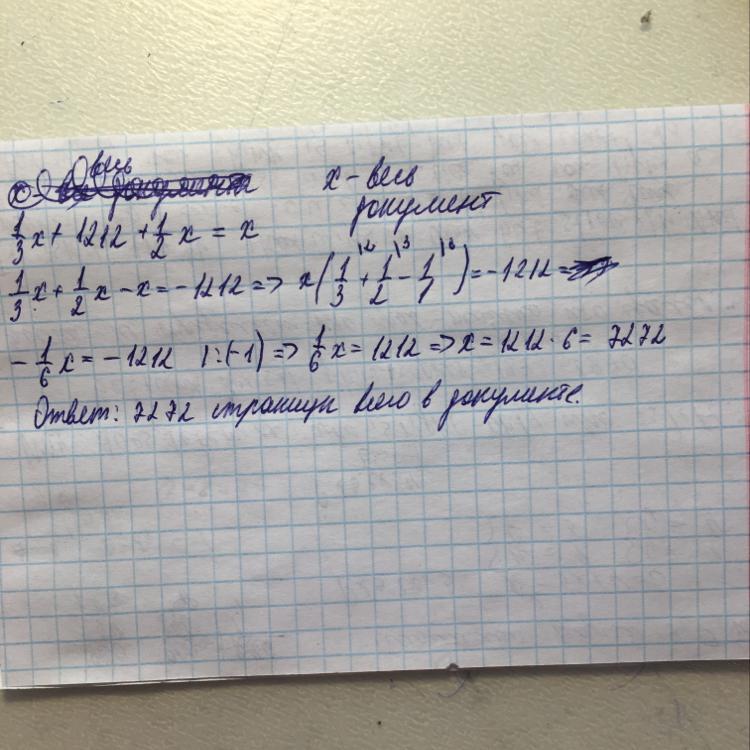 весь
x - весь
документ
1/3 x + 1212 + 1/2 x = x
1/3 x + 1/2 x - x = -1212 => x(1/3 |2 + 1/2 |3 - 1/1 |6) = -1212
-1/6 x = -1212 |:(-1) => 1/6 x = 1212 => x = 1212 · 6 = 7272
Ответ: 7272 страницы всего в документе.